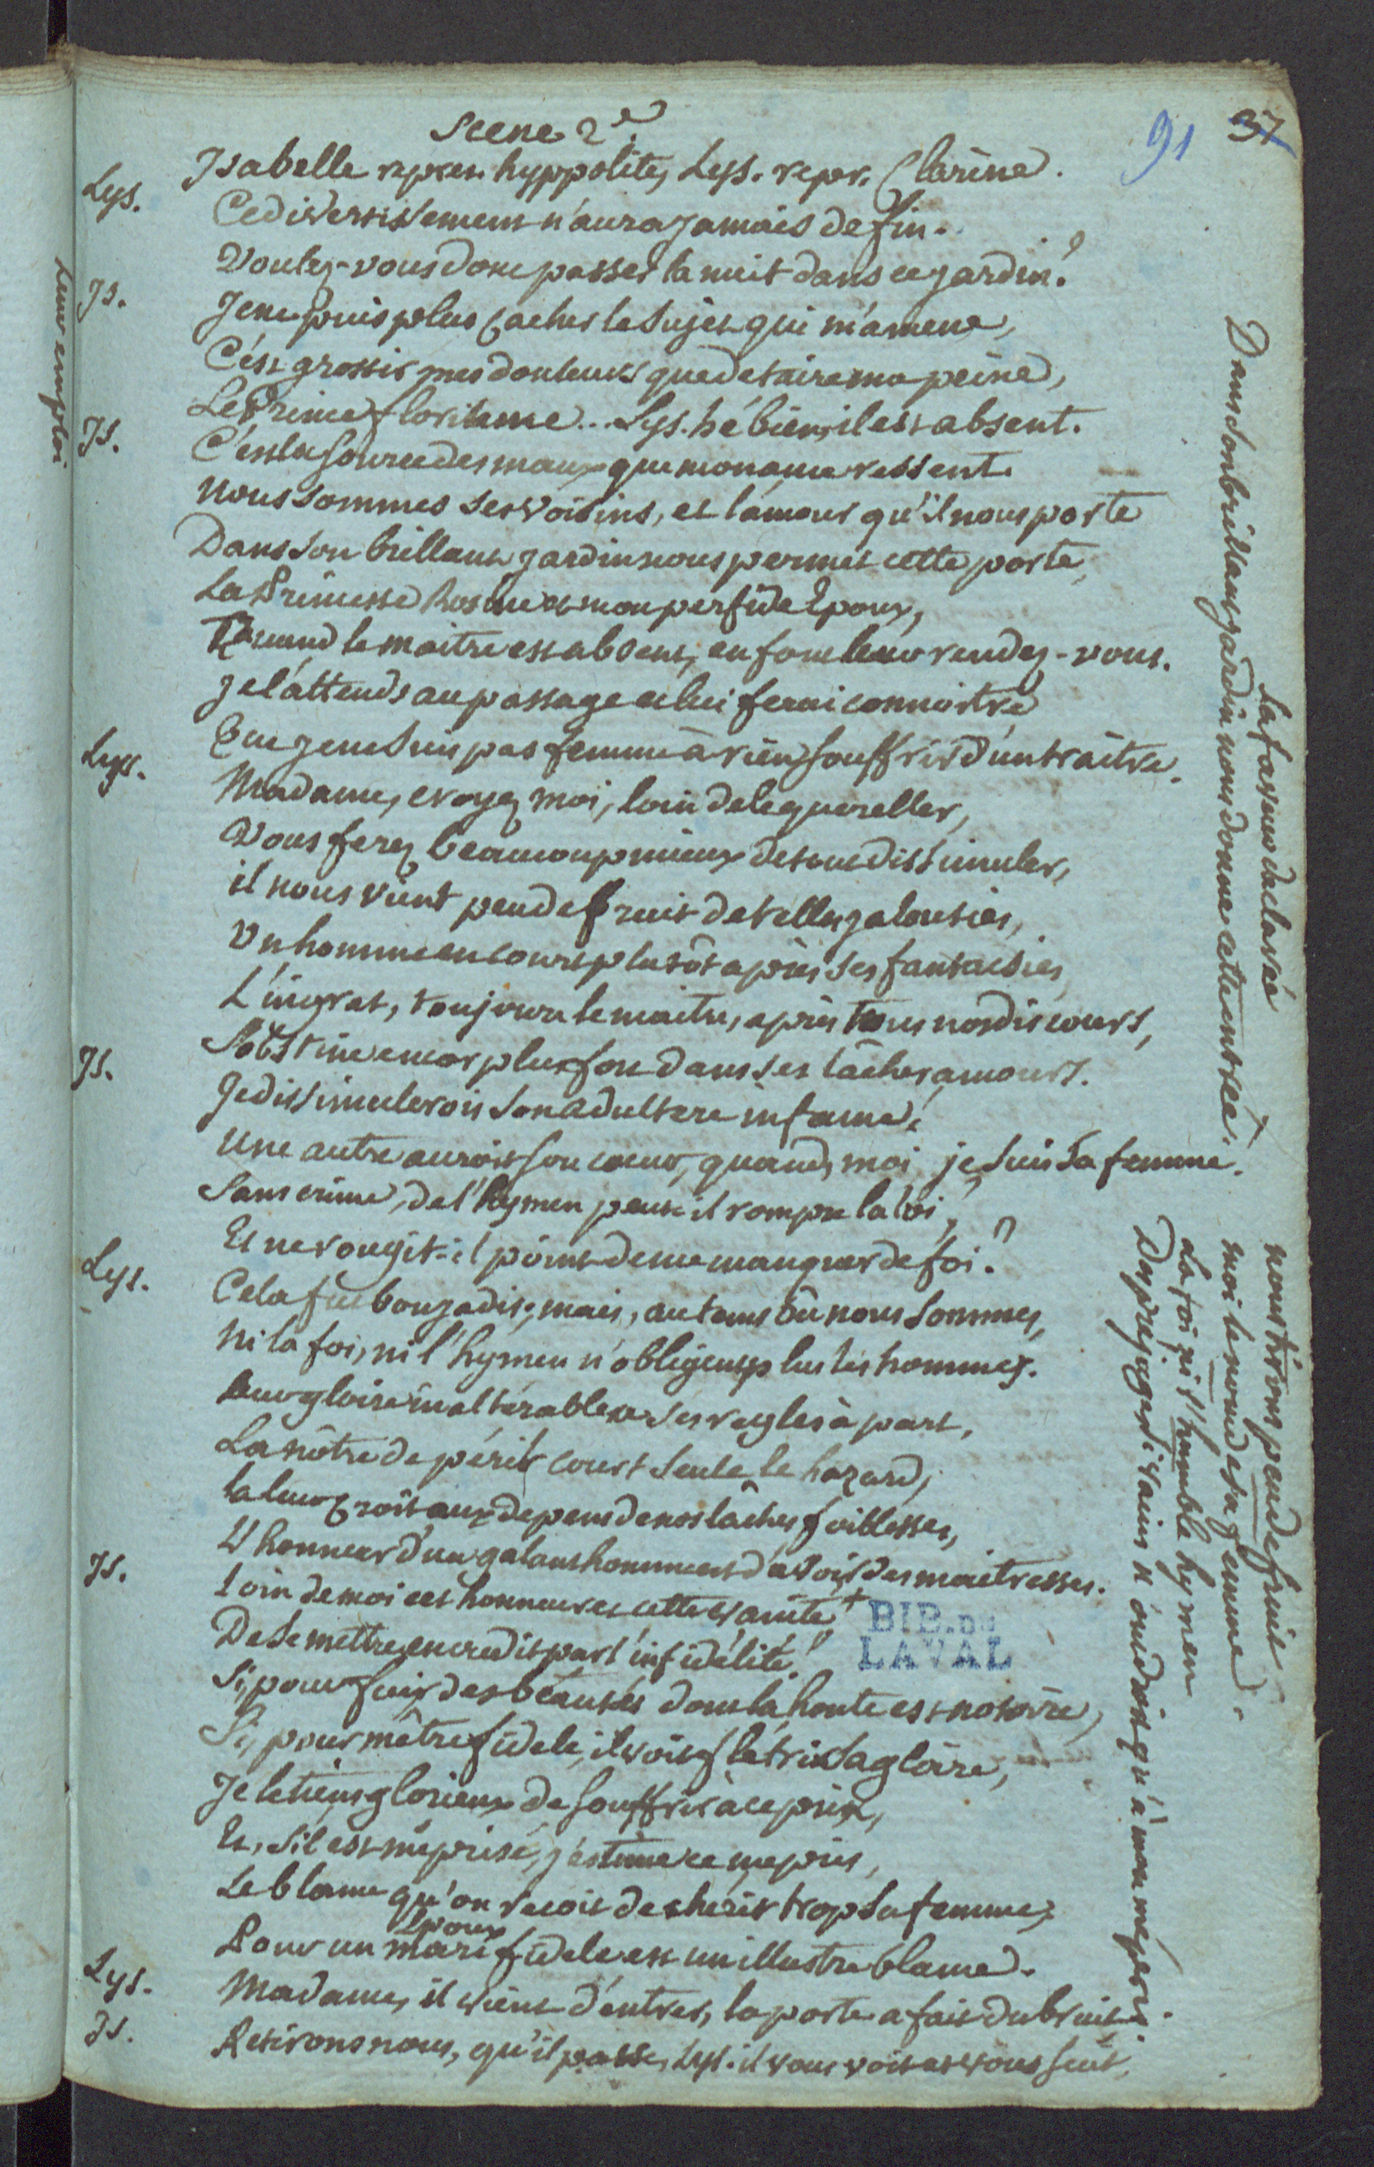 37
91
Scene 2e
Isabelle repres. hyppolite, Lys. repr. Clarine.
Lys. Ce divertissement n'aura jamais de fin.
Voulez-vous donc passer la nuit dans ce jardin?
Is. Je ne puis plus cacher le sujet qui m'amene,
C'est grossir mes douleurs que de taire ma peine,
Le Prince florilame... Lys. hé bien, il est absent.
Is. C'est la source des maux que mon ame ressent.
nous sommes ses voisins, et l'amour qu'il nous porte
Dans son brillant jardin nous permet cette porte,
La Princesse Rosine et mon perfide Epoux,
Quand le maitre est absent, en font leur rendez-vous.
Je l'attends au passage et lui ferai connoitre
Que je ne suis pas femme à rien souffrir d'un traitre.
Lys. Madame, croyez moi, loin de le quereller,
Vous ferez beaucoup mieux de tout dissimuler,
il nous vient peu de fruit de telles jalousies,
Un homme en court plutôt après ses fantaisies,
L'ingrat, toujours le maitre, après tous nos discours,
S'obstine encor plus fort dans ses lâches amours.
Is. Je dissimulerois son adultere infame!
Une autre auroit son coeur, quand, moi, je suis sa femme.
Sans crime, de l'hymen peut-il rompre la loi,
Et ne rougit-il point de me manquer de foi?
Lys. Cela fut bon jadis; mais, au tems où nous sommes,
Ni la foi, ni l'hymen n'obligent plus les hommes.
Leur gloire inaltérable a ses regles à part,
La nôtre de périr court seule le hazard,
la leur croit aux depens de nos lâches foiblesses,
L'honneur d'un galant homme est d'avoir des maitresses.
Is. Loin de moi cet honneur et cette vanité
De se mettre en credit par l'infidélité!
Si, pour fuir des beautés dont la honte est notoire,
Si, pour m'être fidele, il voit flétrir sa gloire,
Je le tiens glorieux de souffrir à ce prix,
Et, s'il est méprisé, j'estime ce mepris,
Le blame qu'on recoit de cherir trop sa femme,
Epoux
Pour un mari fidele est un illustre blame.
Lys. Madame, il vient d'entrer, la porte a fait du bruit.
Is. Retirons nous, qu'il passe, Lys. il vous voit et vous suit.
Dans son brillant jardin nous donne cette entrée.
La façeur declaré
nous tirons peu de fruit
moi le noeud et sa femme.
La foi ni l'humble hymen
Des préjugés si vains n'ont droit qu'à mon mépris.
leur emploi
BIB. DE
LAVAL